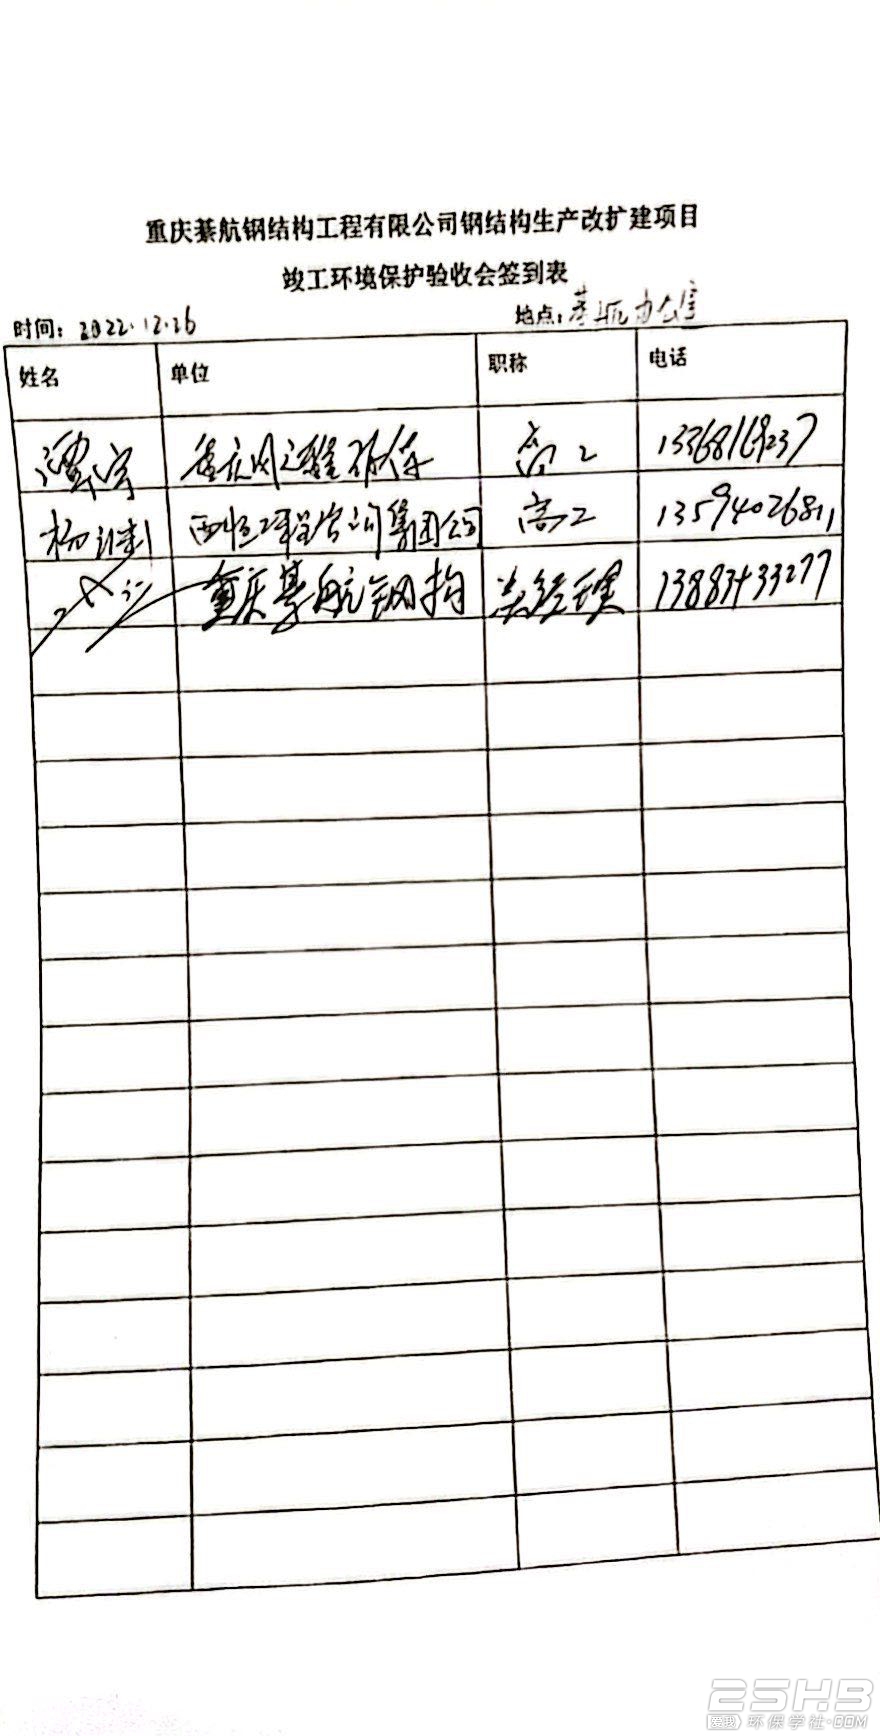 重庆綦航钢结构工程有限公司钢结构生产改扩建项目
竣工环境保护验收会签到表
时间：2022.12.26 地点：綦航办公室
姓名 单位 职称 电话
重庆 环保 高工 13368169237
杨 西恒工程咨询集团公司 高工 13594026811
重庆綦航钢构 总经理 13883433277
25HB
爱我 环保学社.COM